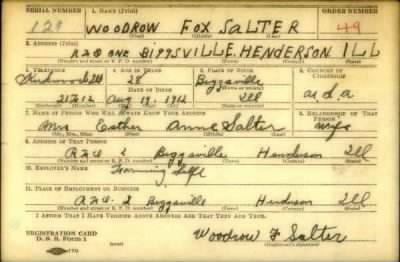 SERIAL NUMBER 1. NAME (Print) ORDER NUMBER
WOODROW FOX SALTER 49
(First) (Middle) (Last)
2. ADDRESS (Print)
R.F.D ONE BIGGSVILLE. HENDERSON ILL
(Number and street or R. F. D. number) (Town) (County) (State)
3. TELEPHONE 4. AGE IN YEARS 5. PLACE OF BIRTH 6. COUNTRY OF CITIZENSHIP
28 Biggsville
DATE OF BIRTH
21F12 Aug 19, 1912 Ill U.S.A
7. NAME OF PERSON WHO WILL ALWAYS KNOW YOUR ADDRESS 8. RELATIONSHIP OF THAT PERSON
Mrs Esther Anne Salter Wife
(Mr., Mrs., Miss) (First) (Middle) (Last)
9. ADDRESS OF THAT PERSON
R.F.D. 2 Biggsville Henderson Ill
(Number and street or R. F. D. number) (Town) (County) (State)
10. EMPLOYER'S NAME
Farming Self
11. PLACE OF EMPLOYMENT OR BUSINESS
R.F.D. 2 Biggsville Henderson Ill
(Number and street or R. F. D. number) (Town) (County) (State)
I AFFIRM THAT I HAVE VERIFIED ABOVE ANSWERS AND THAT THEY ARE TRUE.
REGISTRATION CARD
D. S. S. Form 1
Woodrow F Salter
(Registrant's signature)